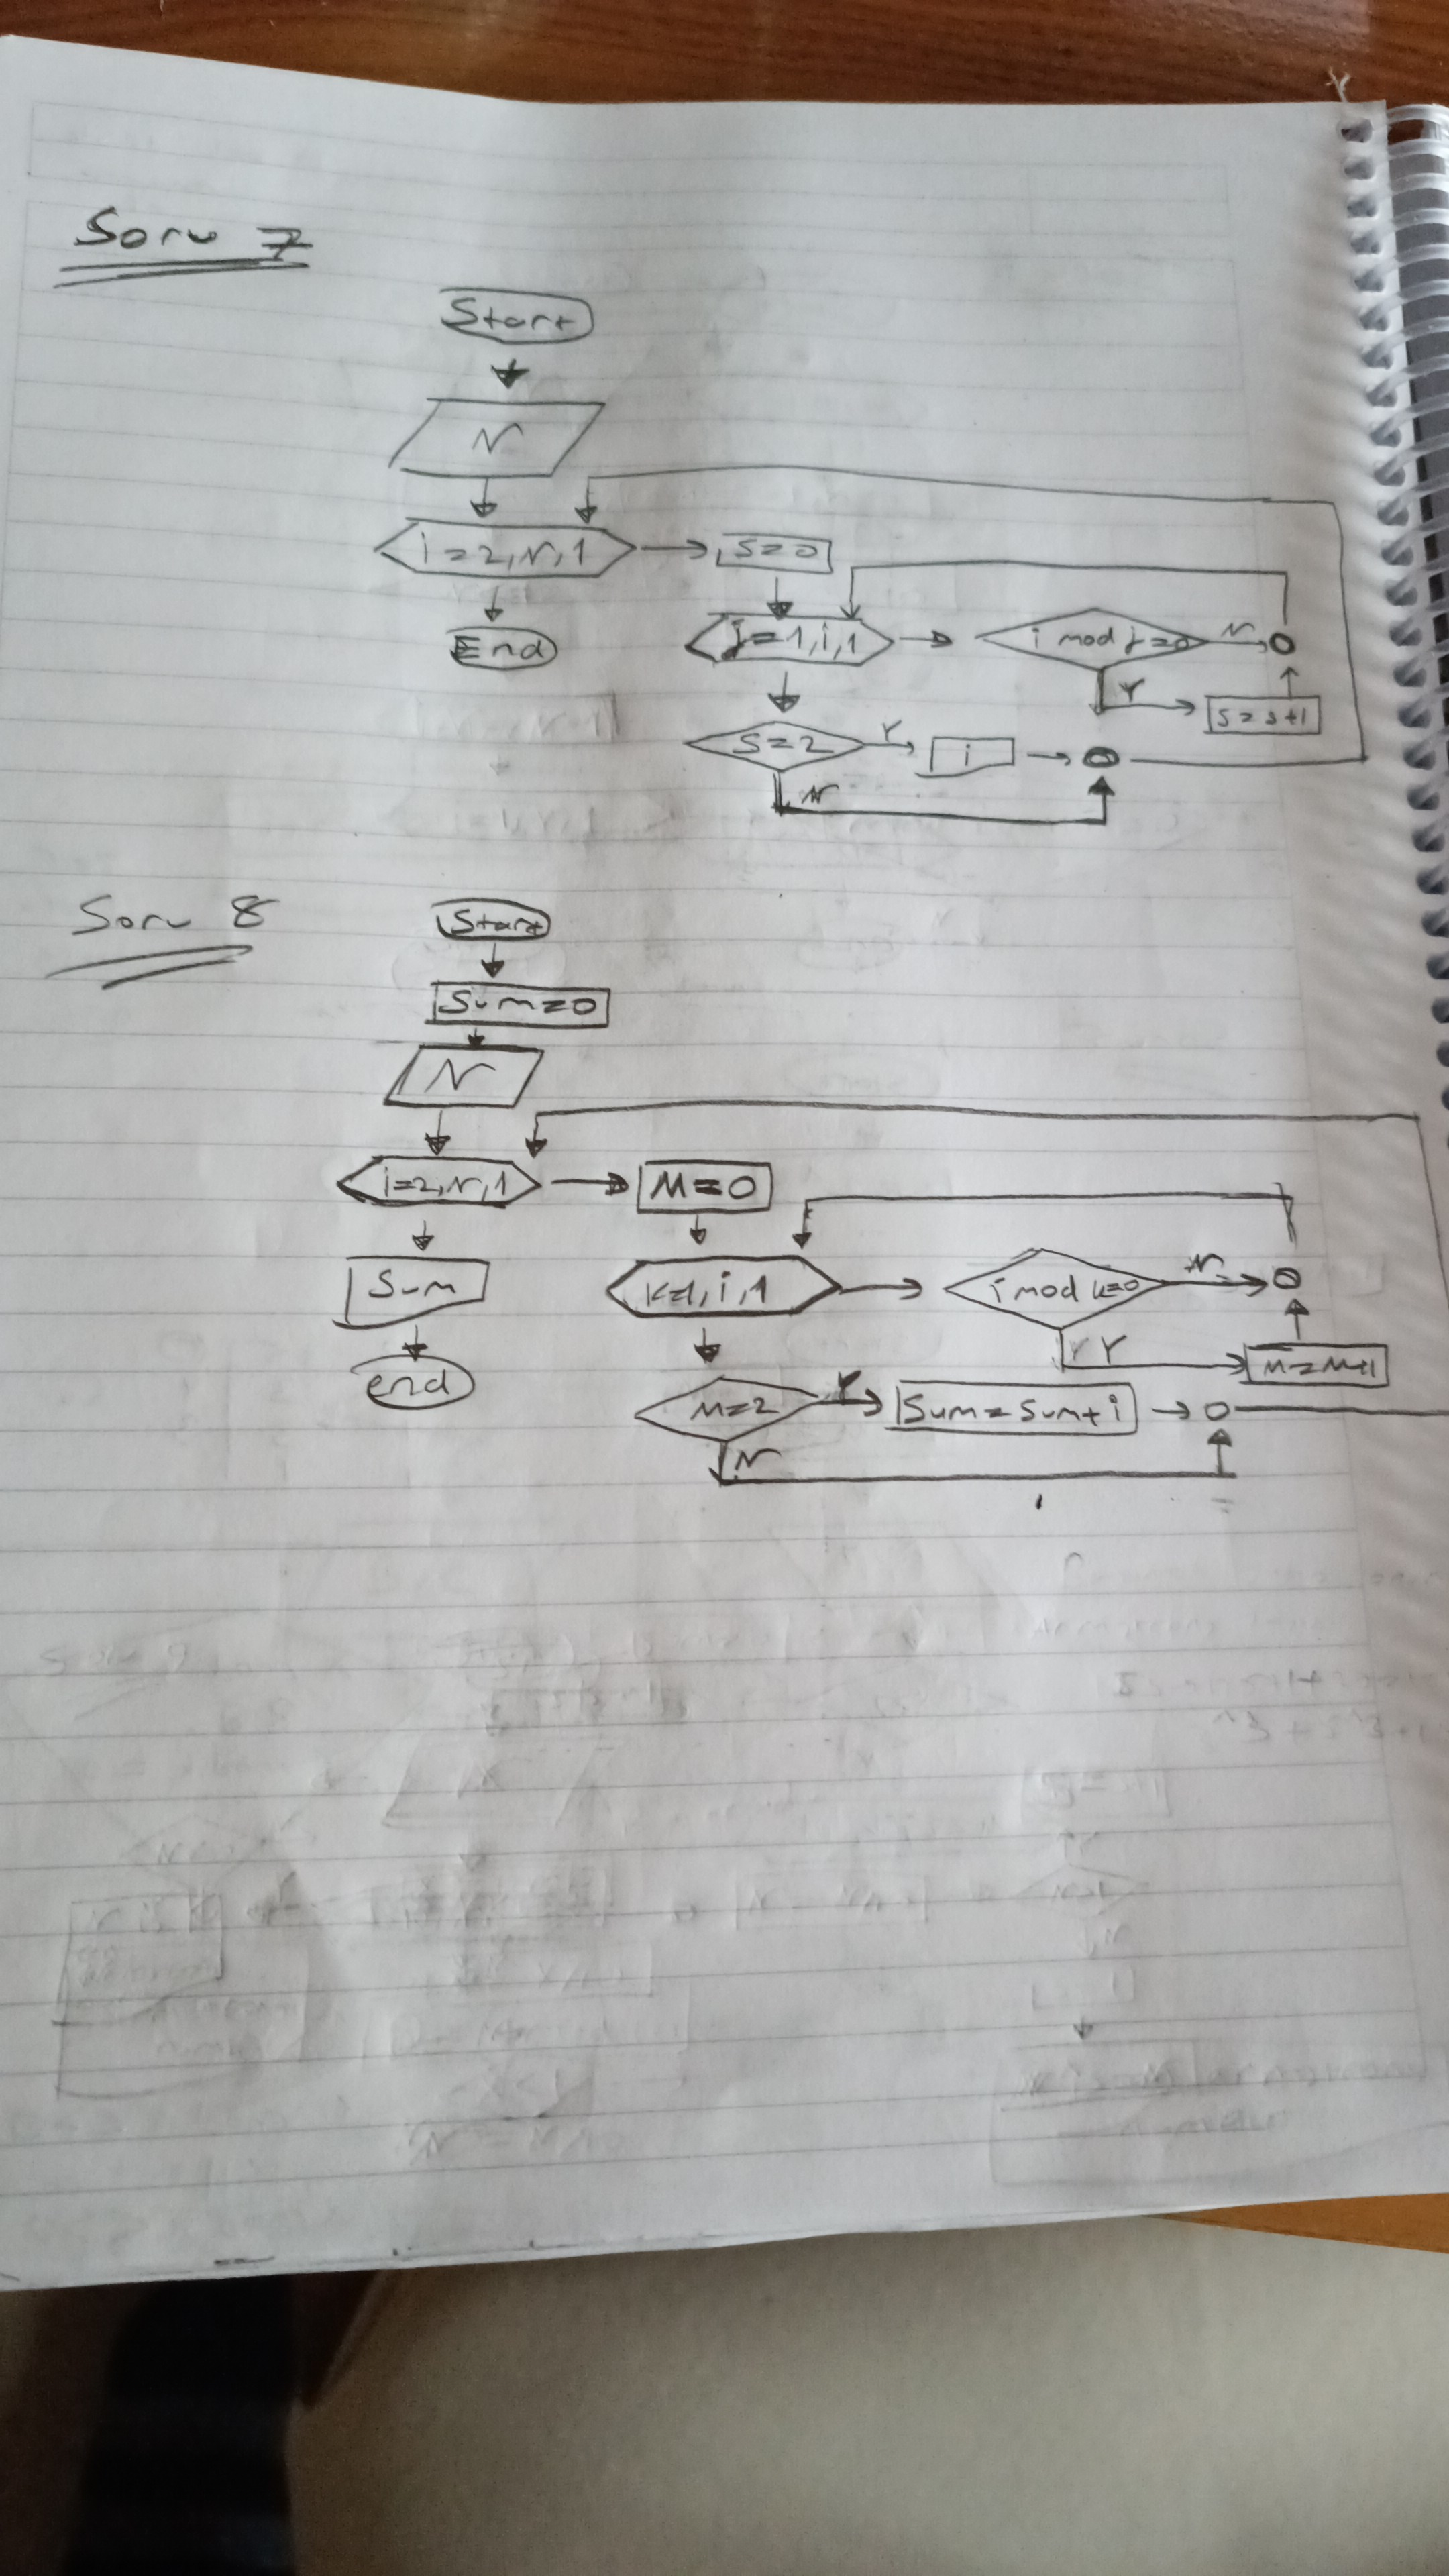 Soru 7
Start
N
i=2,N,1
S=0
End
j=1,i,1
i mod j=0
N
Y
S=S+1
S=2
Y
i
N
Soru 8
Start
Sum=0
N
i=2,N,1
M=0
Sum
k=1,i,1
i mod k=0
N
Y Y
M=M+1
end
M=2
Y
Sum=Sum+i
N